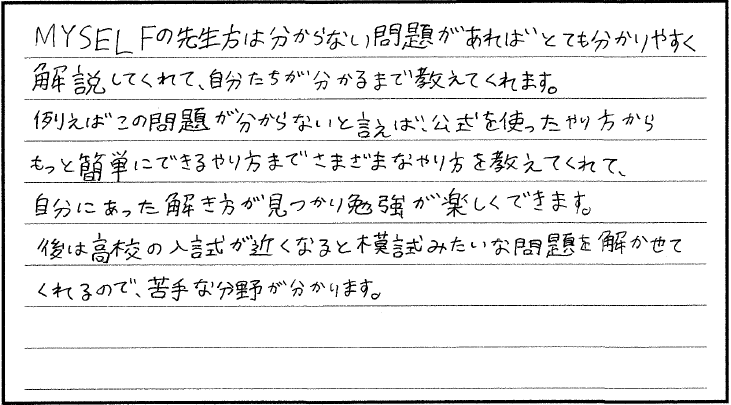 MYSELFの先生方は分からない問題があればとても分かりやすく
解説してくれて、自分たちが分かるまで教えてくれます。
例えばこの問題が分からないと言えば、公式を使ったやり方から
もっと簡単にできるやり方までさまざまなやり方を教えてくれて、
自分にあった解き方が見つかり勉強が楽しくできます。
後は高校の入試が近くなると模試みたいな問題を解かせて
くれるので、苦手な分野が分かります。